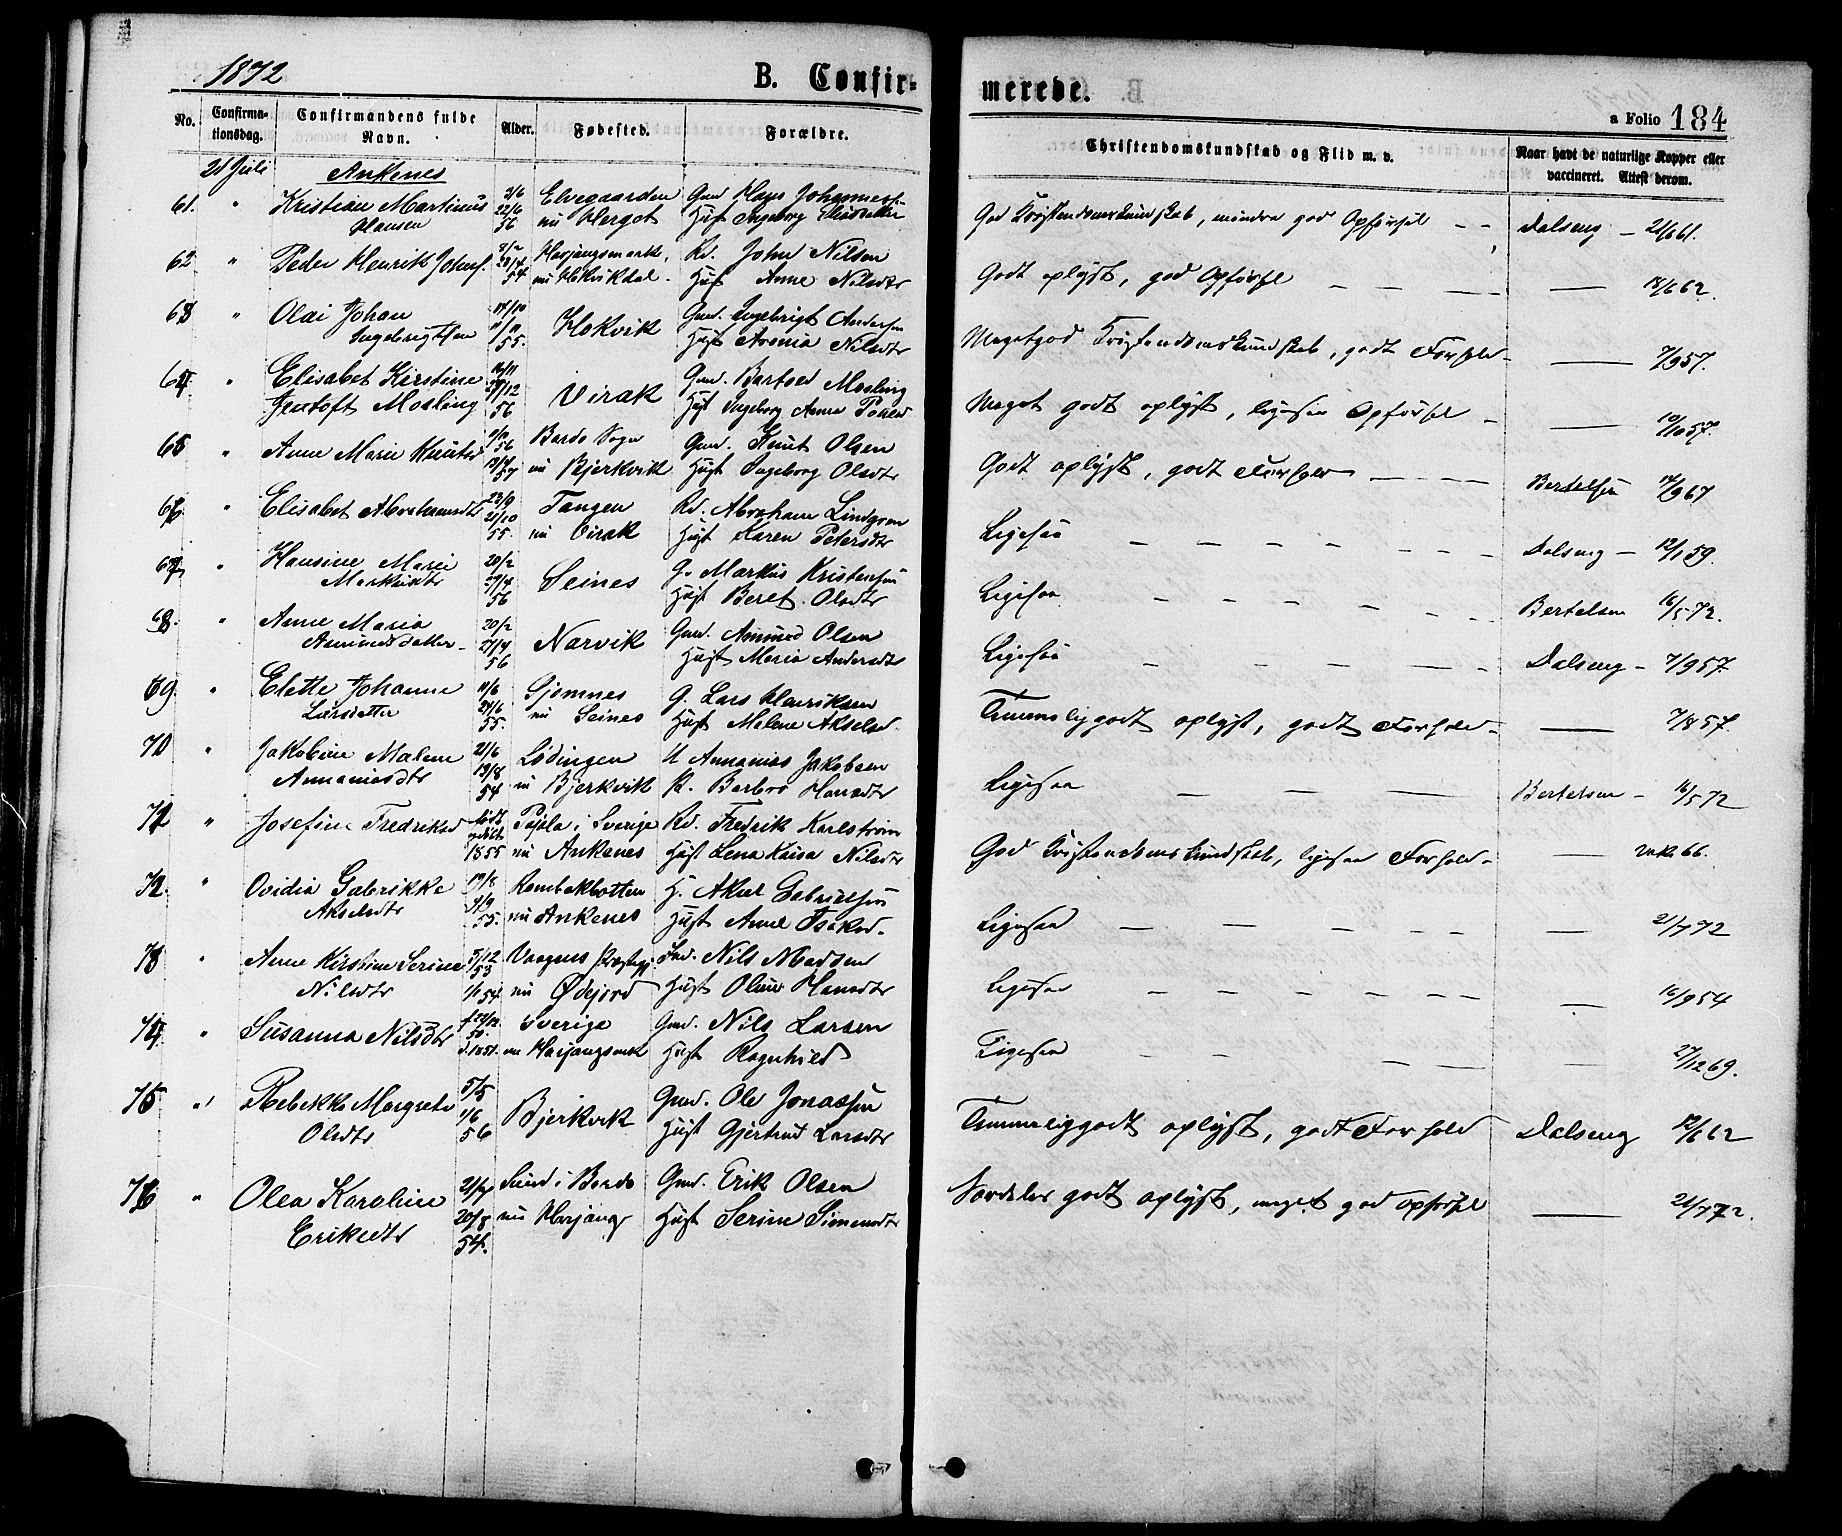 1872
B. Confir-
merede.
a Folio 184
No.
Confirma-
tionsdag.
Confirmandens fulde
Navn.
Alder.
Fødested.
Forældre.
Christendomskundskab og Flid m. v.
Naar havt de naturlige Kopper eller
vaccineret. Attest derom.
21 Juli Ankenes
61. " Kristian Martinus
Hansen
3/6
22/6
56
Elvegaarden
nu Herget
Gmd Hans Johannes
Hust Ingeborg
God Kristendomskundskab, mindre god Opførsel - -
Dalseng - 21/6 61.
62 " Peder Henrik Johns.
54
nu Hokvikdal.
Rd. John Nilsen
Hust Anne Nilsdtr
Godt oplyst, god Opførsel - - - -
18/6 62.
63 " Olai Johan
Ingebrigtsen
55.
Hokvik
Gmd. Ingebrigt Andersen
Hust Nilsdtr
Megetgod Kristendomskundskab, godt Forhold -
7/9 57.
64 " Elisabet Kirstine
Jentoft Mosling
56
Virak
Gmd. Bartod Mosling
Hust Ingeborg Anna
Meget godt oplyst, ligesaa Opførsel -
10/10 57.
65 " Anne Marie Knutsd
Bardo Sogn
nu Bjerkvik
Gmd. Knut Olsen
Hust Ingeborg Olsdtr
Godt oplyst, godt Forhold - - - -
Bertelsen 67
66 " Elisabet Abrahamsdtr
23/9
21/10
55.
Tangen
nu Virak
Rd. Abraham Lindgren
Hust Karen Petersdtr
Ligesaa - - - - - - - -
Dalseng - 12/1 59.
67 " Hansine Marie
Markusdtr
20/2
29/4
56
Seines
G. Markus Kristensen
Hust Beret Olsdtr
Ligesaa - - - - - - -
Bertelsen 16/5 72.
68. " Anne Maria
Amundsdatter -
20/2
27/4
56
Narvik
Gmd. Amund Olsen
Hust Maria Andersdtr
Ligesaa - - - - - - -
Dalseng - 7/9 57.
69 " Elette Johanne
Larsdatter
11/6
24/6
55.
Gjomnes
nu Seines
G. Lars Henriksen
Hust Melene Akselsd.
Temmeliggodt oplyst, godt Forhold -
7/8 57.
70 " Jakobine Malene
Annaniasdtr
21/6
13/8
54
Lødingen
nu Bjerkvik
U Annanias Jakobsen
P. Barbro Hansdtr
Ligesaa - - -
Bertelsen - 16/5 72
71 " Josefine Fredriksd
født
døbt
1855
Pajala i Sverige
nu Ankenes
Rd. Fredrik Karlstrøm
Hust Lena Kaisa Nilsdtr
God Kristendomskundskab, ligesaa Forhold -
vak. 66.
72. " Ovidia Gabrikke
Akselsdtr
19/8
9/9
55.
Rombaksbotten
nu Ankenes
H. Aksel Gabrielsen
Hust Anne Isaksd.
Ligesaa - - - - - -
21/7 72
73 " Anne Kirstine Serine
Nilsdtr
5/12
53
1/1 54
Vaagens Præstegj.
nu Ødejord
Ind. Nils Madsen
Hust Oline Hansdtr
Ligesaa - - - - - - -
16/9 54
74 " Susanna Nilsdtr
50.
d. 1851.
Sverige
Gmd. Nils Larsen
Hust Ragnhild
Ligesaa - - - - -
27/12 69.
75 " Rebekka Margrete
Olsdtr
5/5
1/6
56
Bjerkvik
Gmd. Ole Jonassen
Hust Gjertrud Larsdtr
Temmeliggodt oplyst, godt Forhold
Dalseng 12/6 62
76 " Olea Karoline
Eriksdtr
21/7
20/8
54.
Sund i Bardo
nu Herjang
Gmd. Erik Olsen
Hust Serine Simonsdtr
Særdeles godt oplyst, meget god Opførsel
21/7 72.